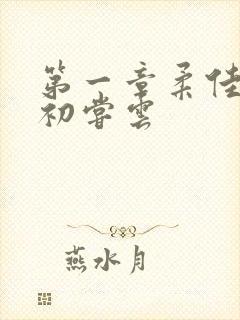 第一章柔佳
初尝云
燕水月